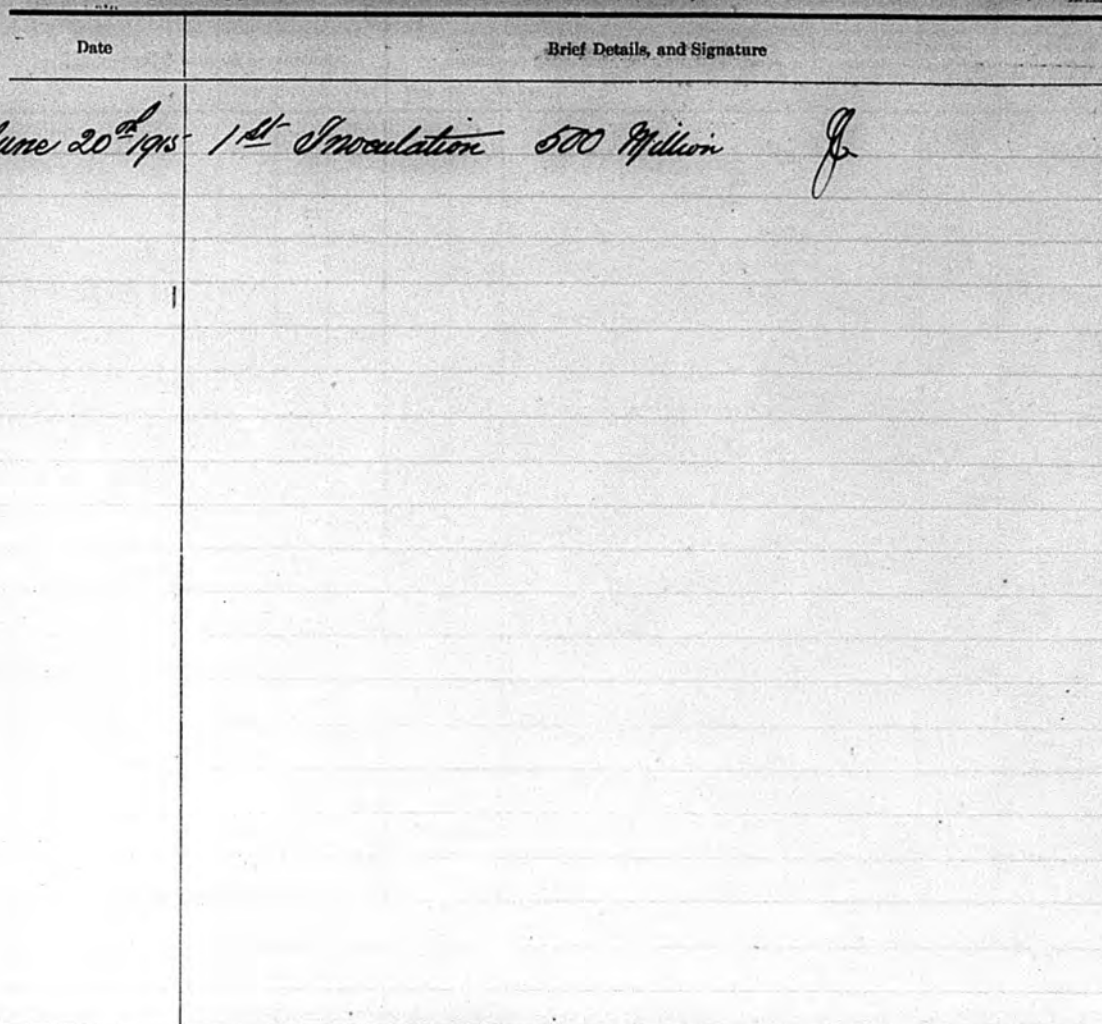 Date Brief Details, and Signature
June 20th 1915 1st Inoculation 500 Million